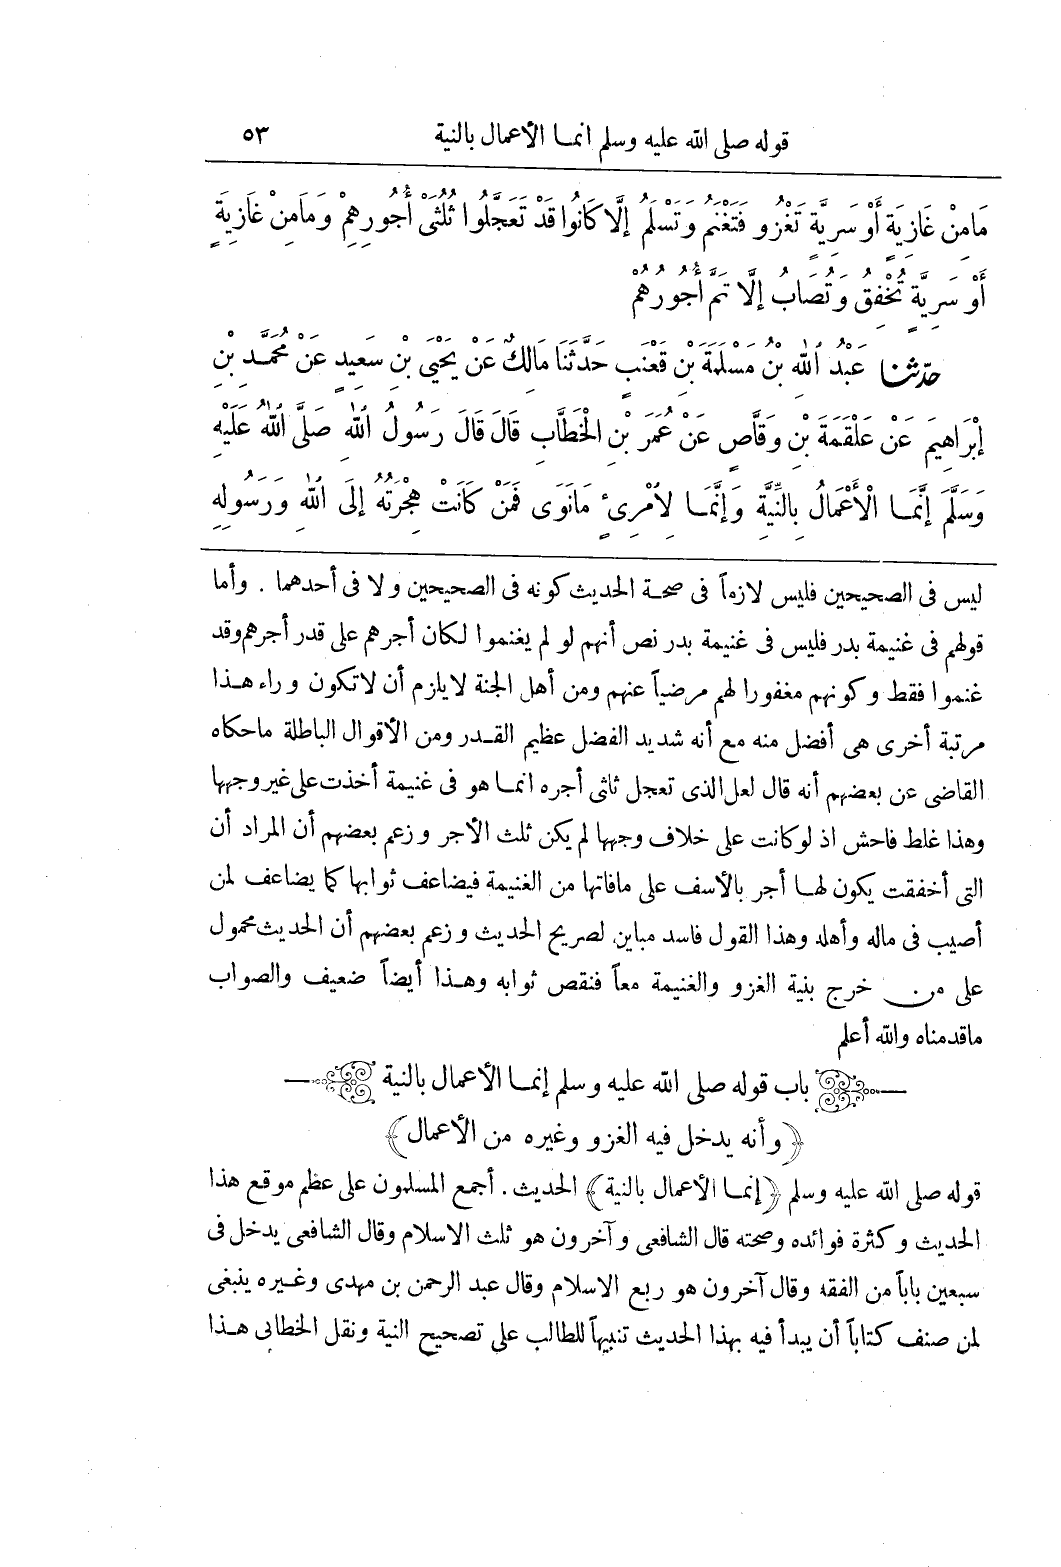 قوله صلى الله عليه وسلم انمـا الأعمال بالنية ٥٣
مَامِنْ غَازِيَةٍ أَوْ سَرِيَّةٍ تَغْزُو فَتَغْنَمُ وَتَسْلَمُ إِلَّا كَانُوا قَدْ تَعَجَّلُوا ثُلُثَىْ أُجُورِهِمْ وَمَامِنْ غَازِيَةٍ
أَوْ سَرِيَّةٍ تُخْفِقُ وَتُصَابُ إِلَّا تَمَّ أُجُورُهُمْ
حدّثنا عَبْدُ اللهِ بْنُ مَسْلَمَةَ بْنِ قَعْنَبٍ حَدَّثَنَا مَالِكٌ عَنْ يَحْيَى بْنِ سَعِيدٍ عَنْ مُحَمَّـدِ بْنِ
إِبْرَاهِيمَ عَنْ عَلْقَمَةَ بْنِ وَقَّاصٍ عَنْ عُمَرَ بْنِ الْخَطَّابِ قَالَ قَالَ رَسُولُ اللهِ صَلَّى اللهُ عَلَيْهِ
وَسَلَّمَ إِنَّمَـا الْأَعْمَالُ بِالنِّيَّةِ وَإِنَّمَـا لِأَمْرِىءٍ مَانَوَى فَمَنْ كَانَتْ هِجْرَتُهُ إِلَى اللهِ وَرَسُولِهِ
ليس فى الصحيحين فليس لازماً فى صحـة الحديث كونه فى الصحيحين ولا فى أحدهما . وأما
قولهم فى غنيمة بدر فليس فى غنيمة بدر نص أنهم لو لم يغنموا لكان أجرهم على قدر أجرهم وقد
غنموا فقط وكونهم مغفورا لهم مرضياً عنهم ومن أهل الجنة لايلزم أن لاتكون وراء هـذا
مرتبة أخرى هى أفضل منه مع أنه شديد الفضل عظيم القـدر ومن الأقوال الباطلة ماحكاه
القاضى عن بعضهم أنه قال لعل الذى تعجل ثلثى أجره انمـا هو فى غنيمة أخذت على غير وجهها
وهذا غلط فاحش اذ لوكانت على خلاف وجهها لم يكن ثلث الأجر وزعم بعضهم أن المراد أن
التى أخفقت يكون لهـا أجر بالأسف على مافاتها من الغنيمة فيضاعف ثوابها كما يضاعف لمن
أصيب فى ماله وأهله وهذا القول فاسد مباين لصريح الحديث وزعم بعضهم أن الحديث محمول
على من خرج بنية الغزو والغنيمة معاً فنقص ثوابه وهـذا أيضاً ضعيف والصواب
ماقدمناه والله أعلم
باب قوله صلى الله عليه وسلم إنمـا الأعمال بالنية
﴿وأنه يدخل فيه الغزو وغيره من الأعمال﴾
قوله صلى الله عليه وسلم ﴿إنمـا الأعمال بالنية﴾ الحديث . أجمع المسلمون على عظم موقع هذا
الحديث وكثرة فوائده وصحته قال الشافعى وآخرون هو ثلث الاسلام وقال الشافعى يدخل فى
سبعين باباً من الفقه وقال آخرون هو ربع الاسلام وقال عبد الرحمن بن مهدى وغـيره ينبغى
لمن صنف كتاباً أن يبدأ فيه بهذا الحديث تنبيهاً للطالب على تصحيح النية ونقل الخطابى هـذا